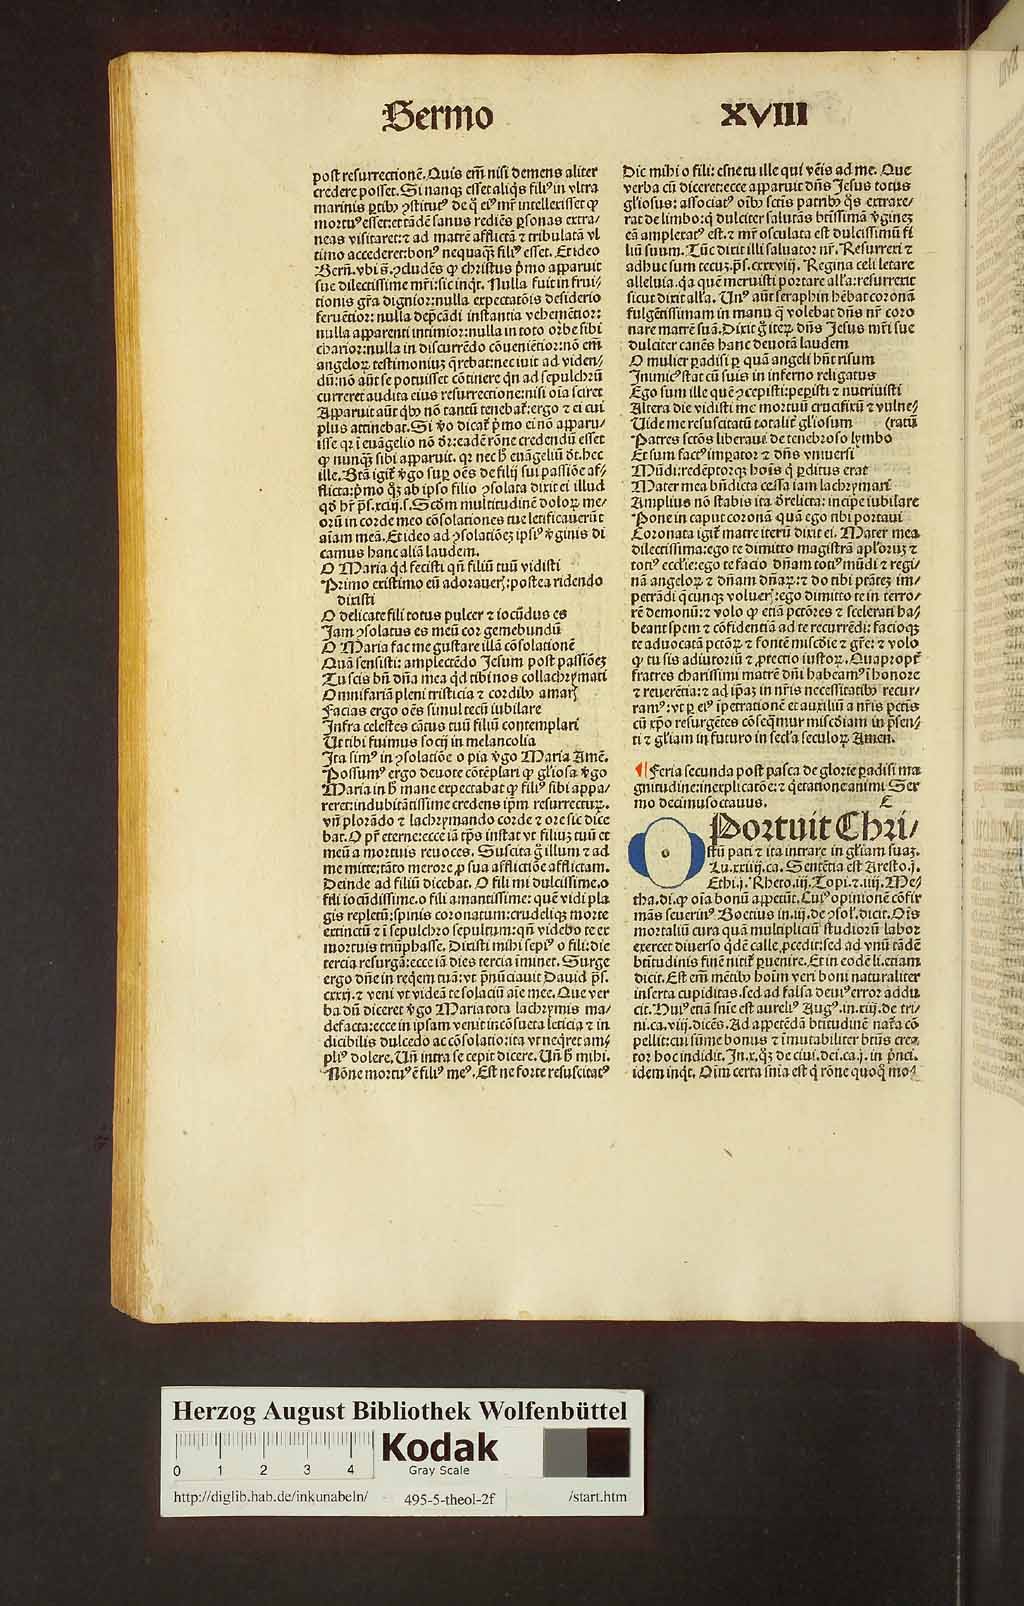 Sermo XVIII
post resurrectionē. Quis em̄ nisi demens aliter
credere posset. Si nanqꝫ esset aliq̇s filiꝰ in vltra
marinis ꝑtibꝰ ꝯstitutꝰ de q̇ eiꝰ mr̄ intellexisset ꝙ
mortuꝰ esset: et tādē sanus rediēs ꝑsonas extra⸗
neas visitaret: ⁊ ad matrē afflictā ⁊ tribulatā vl
timo accederet: bonꝰ nequaq̄ꝫ filiꝰ esset. Et ideo
Bern̄. vbi s̄. ꝯcludēs ꝙ christus p̄mo apparuit
sue dilectissime mr̄i: sic inq̇t. Nulla fuit in frui⸗
tionis gr̄a dignior: nulla expectatōis desiderio
feruētior: nulla dep̄cādi instantia vehemētior:
nulla apparenti intimior: nulla in toto orbe sibi
charior: nulla in discurrēdo cōueniētior: nō em̄
angeloꝝ testimoniuꝫ q̄rebat: nec iuit ad viden⸗
dū: nō aūt se potuisset cōtinere q̇n ad sepulchrū
curreret audita eius resurrectione: nisi oīa sciret
Apparuit aūt q̇bꝰ nō tantū tenebat̄: ergo ⁊ ei cui
plus attinebat. Si v̄o dicat̄ p̄mo ei nō apparu⸗
isse qꝛ ī euāgelio nō dr̄: eadē rōne credendū esset
ꝙ nunq̄ꝫ sibi apparuit. qꝛ nec h̄ euāgeliū dt̄. hec
ille. Btā igit̄ v̄go suꝑ oēs de filij sui passiōe af⸗
flicta: p̄mo q̇ꝫ ab ipso filio ꝯsolata dixit ei illud
qd̄ hr̄ p̄s. xciij. s. Scdm̄ multitudinē doloꝝ me⸗
orū in corde meo cōsolationes tue letificauerūt
aīam meā. Et ideo ad ꝯsolatiōeꝫ ipsiꝰ v̄ginis di
camus hanc aliā laudem.
O Maria q̇d fecisti qn̄ filiū tuū vidisti
Primo existimo eū adorauerꝭ: postea ridendo
dixisti
O delicate fili totus pulcer ⁊ iocūdus es
Jam ꝯsolatus es meū cor gemebundū
O Maria fac me gustare illā cōsolationē
Quā sensisti: amplectēdo Jesum post passiōeꝫ
Tu scis bn̄ dn̄a mea q̇d tibi nos collachrymati
Omnifariā pleni tristicia ⁊ cordibꝰ amarꝭ
Facias ergo oēs simul tecū iubilare
Infra celestes cātus tuū filiū contemplari
Ut tibi fuimus socij in melancolia
Ita simꝰ in ꝯsolatiōe o pia v̄go Maria Amē.
Possumꝰ ergo deuote cōtēplari ꝙ gl̄iosa v̄go
Maria in h̄ mane expectabat ꝙ filiꝰ sibi appa⸗
reret: indubitātissime credens ip̄m resurrecturꝝ.
vn̄ plorādo ⁊ lachrymando corde ⁊ ore sic dice
bat. O pr̄ eterne: ecce iā tp̄s instat vt filiuꝫ tuū et
meū a mortuis reuoces. Suscita g̊ illum ⁊ ad
me mitte: tāto merore ꝓ sua afflictiōe afflictam.
Deinde ad filiū dicebat. O fili mi dulcissime. o
fili iocūdissime. o fili amantissime: quē vidi pla
gis repletū: spinis coronatum: crudeliqꝫ morte
extinctū ⁊ ī sepulchro sepultum: qn̄ videbo te ex
mortuis triūphasse. Dixisti mihi sepiꝰ o fili: die
tercia resurgā: ecce iā dies tercia iminet. Surge
ergo dn̄e in reqem tuā: vt p̄nūciauit Dauid p̄s.
cxxxj. ⁊ veni vt videā te solaciū aīe mee. Que ver
ba dū diceret v̄go Maria tota lachrymis ma⸗
defacta: ecce in ipsam venit incōsueta leticia ⁊ in
dicibilis dulcedo ac cōsolatio: ita vt neq̇ret am⸗
pliꝰ dolere. Un̄ intra se cepit dicere. Un̄ h̄ mihi.
Nōne mortuꝰ ē filiꝰ meꝰ. Est ne forte resuscitatꝰ
Dic mihi o fili: esne tu ille qui vēis ad me. Que
verba cū diceret: ecce apparuit dn̄s Jesus totus
gl̄iosus: associatꝰ oībꝰ sctīs patribꝰ q̇s extraxe⸗
rat de limbo: q̇ dulciter salutās btissimā v̄gineꝫ
eā ampletatꝰ est. ⁊ mr̄ osculata est dulcissimū fi
liū suum. Tūc dixit illi saluator nr̄. Resurrexi ⁊
adhuc sum tecuꝫ. p̄s. cxxxviij. Regina celi letare
alleluia. q̇a quē meruisti portare all'a: resurrexit
sicut dixit all'a. Unꝰ aūt seraphin hēbat coronā
fulgētissimam in manu q̄ volebat dn̄s nr̄ coro
nare matrē suā. Dixit g̊ iteꝝ dn̄s Jesus mr̄i sue
dulciter canēs hanc deuotā laudem
O mulier ꝑadisi ꝑ quā angeli hn̄t risum
Inimicꝰ stat cū suis in inferno religatus
Ego sum ille quē ꝯcepisti: peꝑisti ⁊ nutriuisti
Altera die vidisti me mortuū crucifixū ⁊ vulne⸗
Uide me resuscitatū totalit̄ gl̄iosum (ratū
Patres sctōs liberaui de tenebroso lymbo
Et sum factꝰ imꝑator ⁊ dn̄s vniuersi
Mūdi: redēptorqꝫ hoīs q̇ ꝑditus erat
Mater mea bn̄dicta cessa iam lachrymari
Amplius nō stabis ita derelicta: incipe iubilare
Pone in caput coronā quā ego tibi portaui
Coronata igit̄ matre iterū dixit ei. Mater mea
dilectissima: ego te dimitto magistrā apl'oruꝫ ⁊
totiꝰ eccl'ie: ego te facio dn̄am totiꝰ mūdi ⁊ regi⸗
nā angeloꝝ ⁊ dn̄am dn̄aꝝ: ⁊ do tibi ptāteꝫ im⸗
petrādi q̇cunqꝫ volueꝭ: ego dimitto te in terro⸗
rē demonū: ⁊ volo ꝙ etiā pctōres ⁊ scelerati ha⸗
beant spem ⁊ cōfidentiā ad te recurrēdi: facioqꝫ
te aduocatā pctōꝝ ⁊ fontē miscdīe ⁊ gr̄e: ⁊ volo
ꝙ tu sis adiutoriū ⁊ ꝓtectio iustoꝝ. Quapropt̄
fratres charissimi matrē dn̄i habeamꝰ ī honore
⁊ reuerētia: ⁊ ad ip̄aꝫ in nr̄is necessitatibꝰ recur⸗
ramꝰ: vt ꝑ eiꝰ īpetrationē et auxiliū a nr̄is pctis
cū xp̄o resurgētes cōseq̄mur miscdīam in p̄sen⸗
ti ⁊ gl̄iam in futuro in secl'a seculoꝝ Amen.
¶ Feria secunda post pasca de glorie ꝑadisi ma
gnitudine: inexplicatōe: ⁊ q̇etatione animi Ser
mo decimusoctauus. E
OPortuit Chri⸗
stū pati ⁊ ita intrare in gl̄iam suaꝫ.
Lu. xxiiij. ca. Sentētia est Aresto. j.
Ethi. j. Rheto. iij. Topi. ⁊ .iiij. Me⸗
tha. di. ꝙ oīa bonū appetūt. Cuiꝰ opinionē cōfir
māS seuerinꝰ Boetius in. iij. de ꝯsol'. dicit. Oīs
mortaliū cura quā multipliciū studiorū labor
exercet diuerso q̇dē calle ꝓcedit: sed ad vnū tādē
btitudinis finē nitit̄ ꝑuenire. Et in eodē li. etiam
dicit. Est em̄ mētibꝰ hoīm veri boni naturaliter
inserta cupiditas. sed ad falsa deuiꝰ error addu
cit. Huiꝰ etiā sn̄ie est aureliꝰ Augꝰ. in. xiij. de tri⸗
ni. ca. viij. dicēs. Ad appetēdā btitudinē nar̄a cō
pellit: cui sūme bonus ⁊ īmutabiliter btūs crea
tor hoc indidit. In. x. q̇ꝫ de ciui. dei. ca. j. in p̄nci.
idem inq̇t. Oīm certa sn̄ia est q̇ rōne quoq̇ mo⸗
Herzog August Bibliothek Wolfenbüttel
0 1 2 3 4
Kodak
Gray Scale
http://diglib.hab.de/inkunabeln/ 495-5-theol-2f /start.htm